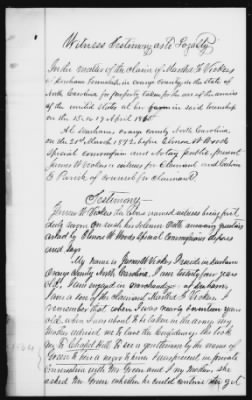 Witness Testimony as to Loyalty
In the matter of the claim of Martha F. Vickers
of Durham Township in Orange County in the State of
North Carolina for property taken for the use of the armies
of the United States at her farm in said township
on the 15 to 19 April 1865
At Durham, Orange County North Carolina
on the 21st March 1872 before Elmore H Woods
Special commission and Notary Public present
James W Vickers a witness for Claimant and
E Parish of counsel for claimant
Testimony—
James W Vickers the above named witness being first
duly sworn on oath in answer to questions
asked by Elmore H Woods Special Commissioner deposes
and says
My name is James W Vickers I reside in Durham
Orange County North Carolina. I am twenty four years
old. I am engaged in merchandizing at Durham,
I am a son of the claimant Martha F. Vickers. I
remember that when I was nearly seventeen years
old, when I was about to be taken in the army my
mother advised me to leave the Confederacy she took
me to Chapel Hill to see a gentleman by the name of
Green &
conversation with Mr Green and I my mother, she
asked Mr Green whether he could enable me get